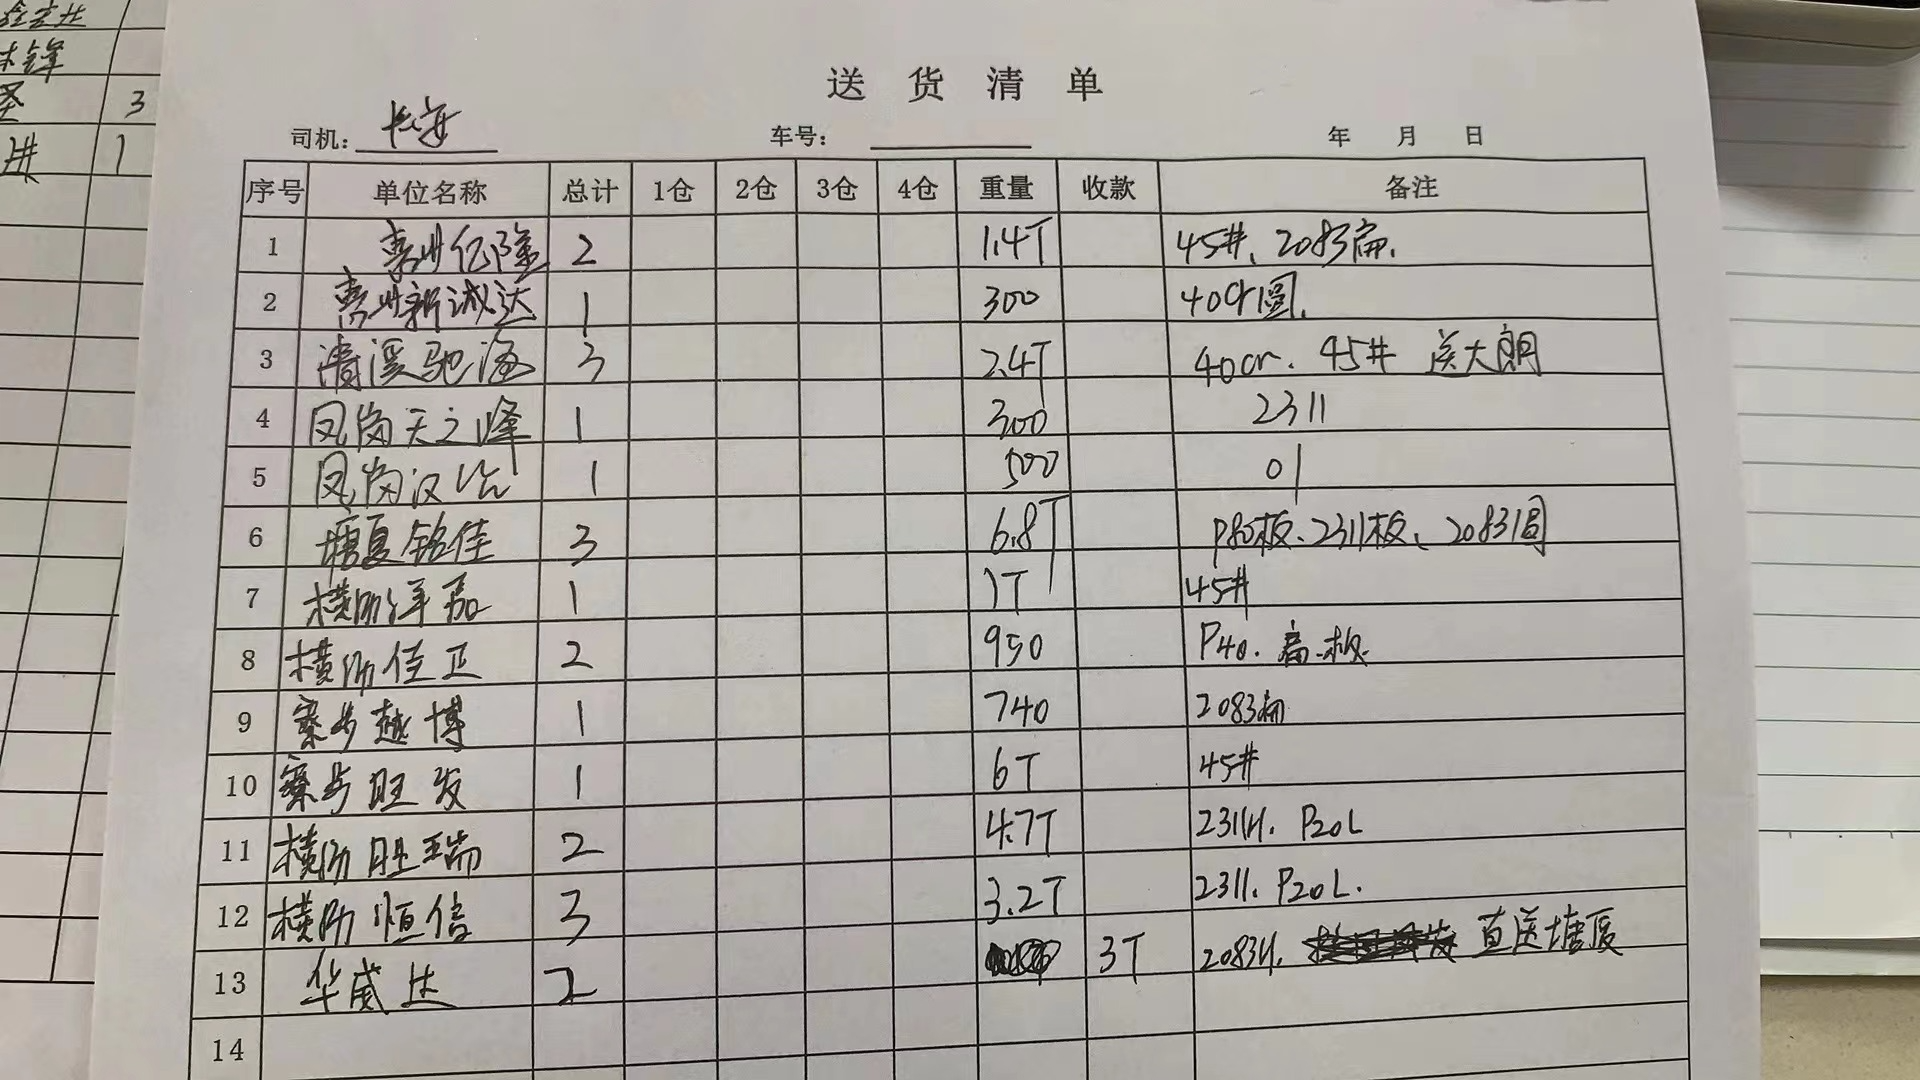 3
进 1
送货清单
司机: 长安 车号: 年 月 日
序号 单位名称 总计 1仓 2仓 3仓 4仓 重量 收款 备注
1 惠州亿隆 2 1.4T 45#、2083扁.
2 惠州新诚达 1 300 40Cr圆.
3 清溪驰海 3 2.4T 40cr. 45# 送大朗
4 凤岗天之峰 1 300 2311
5 凤岗汉 1 500 01
6 塘夏铭佳 3 6.8T P80板、2311板、2083圆
7 横沥 1 1T 45#
8 横沥佳正 2 950 P40. 板.
9 寮步越博 1 740 2083扁
10 寮步旺发 1 6T 45#
11 横沥胜瑞 2 4.7T 2311H. P20L
12 横沥恒信 3 3.2T 2311. P20L.
13 华威达 2 3T 2083H. 直送塘厦
14